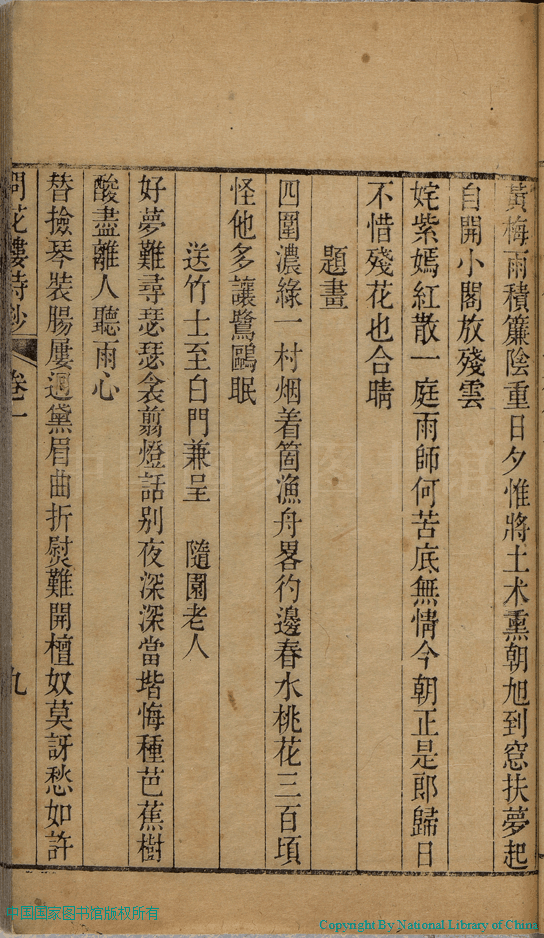 黃梅雨積簾陰重日夕惟將土术熏朝旭到窻扶夢起
自開小閣放殘雲
姹紫嫣紅散一庭雨師何苦底無情今朝正是郎歸日
不惜殘花也合晴
題畫
四圍濃綠一村烟着箇漁舟畧彴邊春水桃花三百頃
怪他多讓鷺鷗眠
送竹士至白門兼呈　隨園老人
好夢難尋瑟瑟衾翦燈話別夜深深當堦悔種芭蕉樹
酸盡離人聽雨心
替撿琴裝腸屢迴黛眉曲折熨難開檀奴莫訝愁如許
問花樓詩鈔　卷一　九
中国国家图书馆版权所有
Copyright By National Library of China